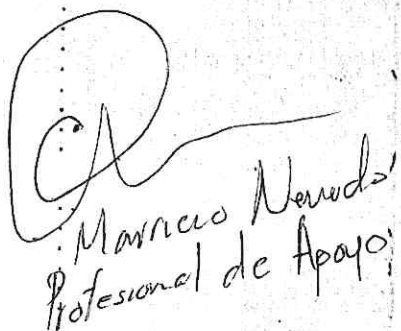 Mauricio Neruda
Profesional de Apoyo